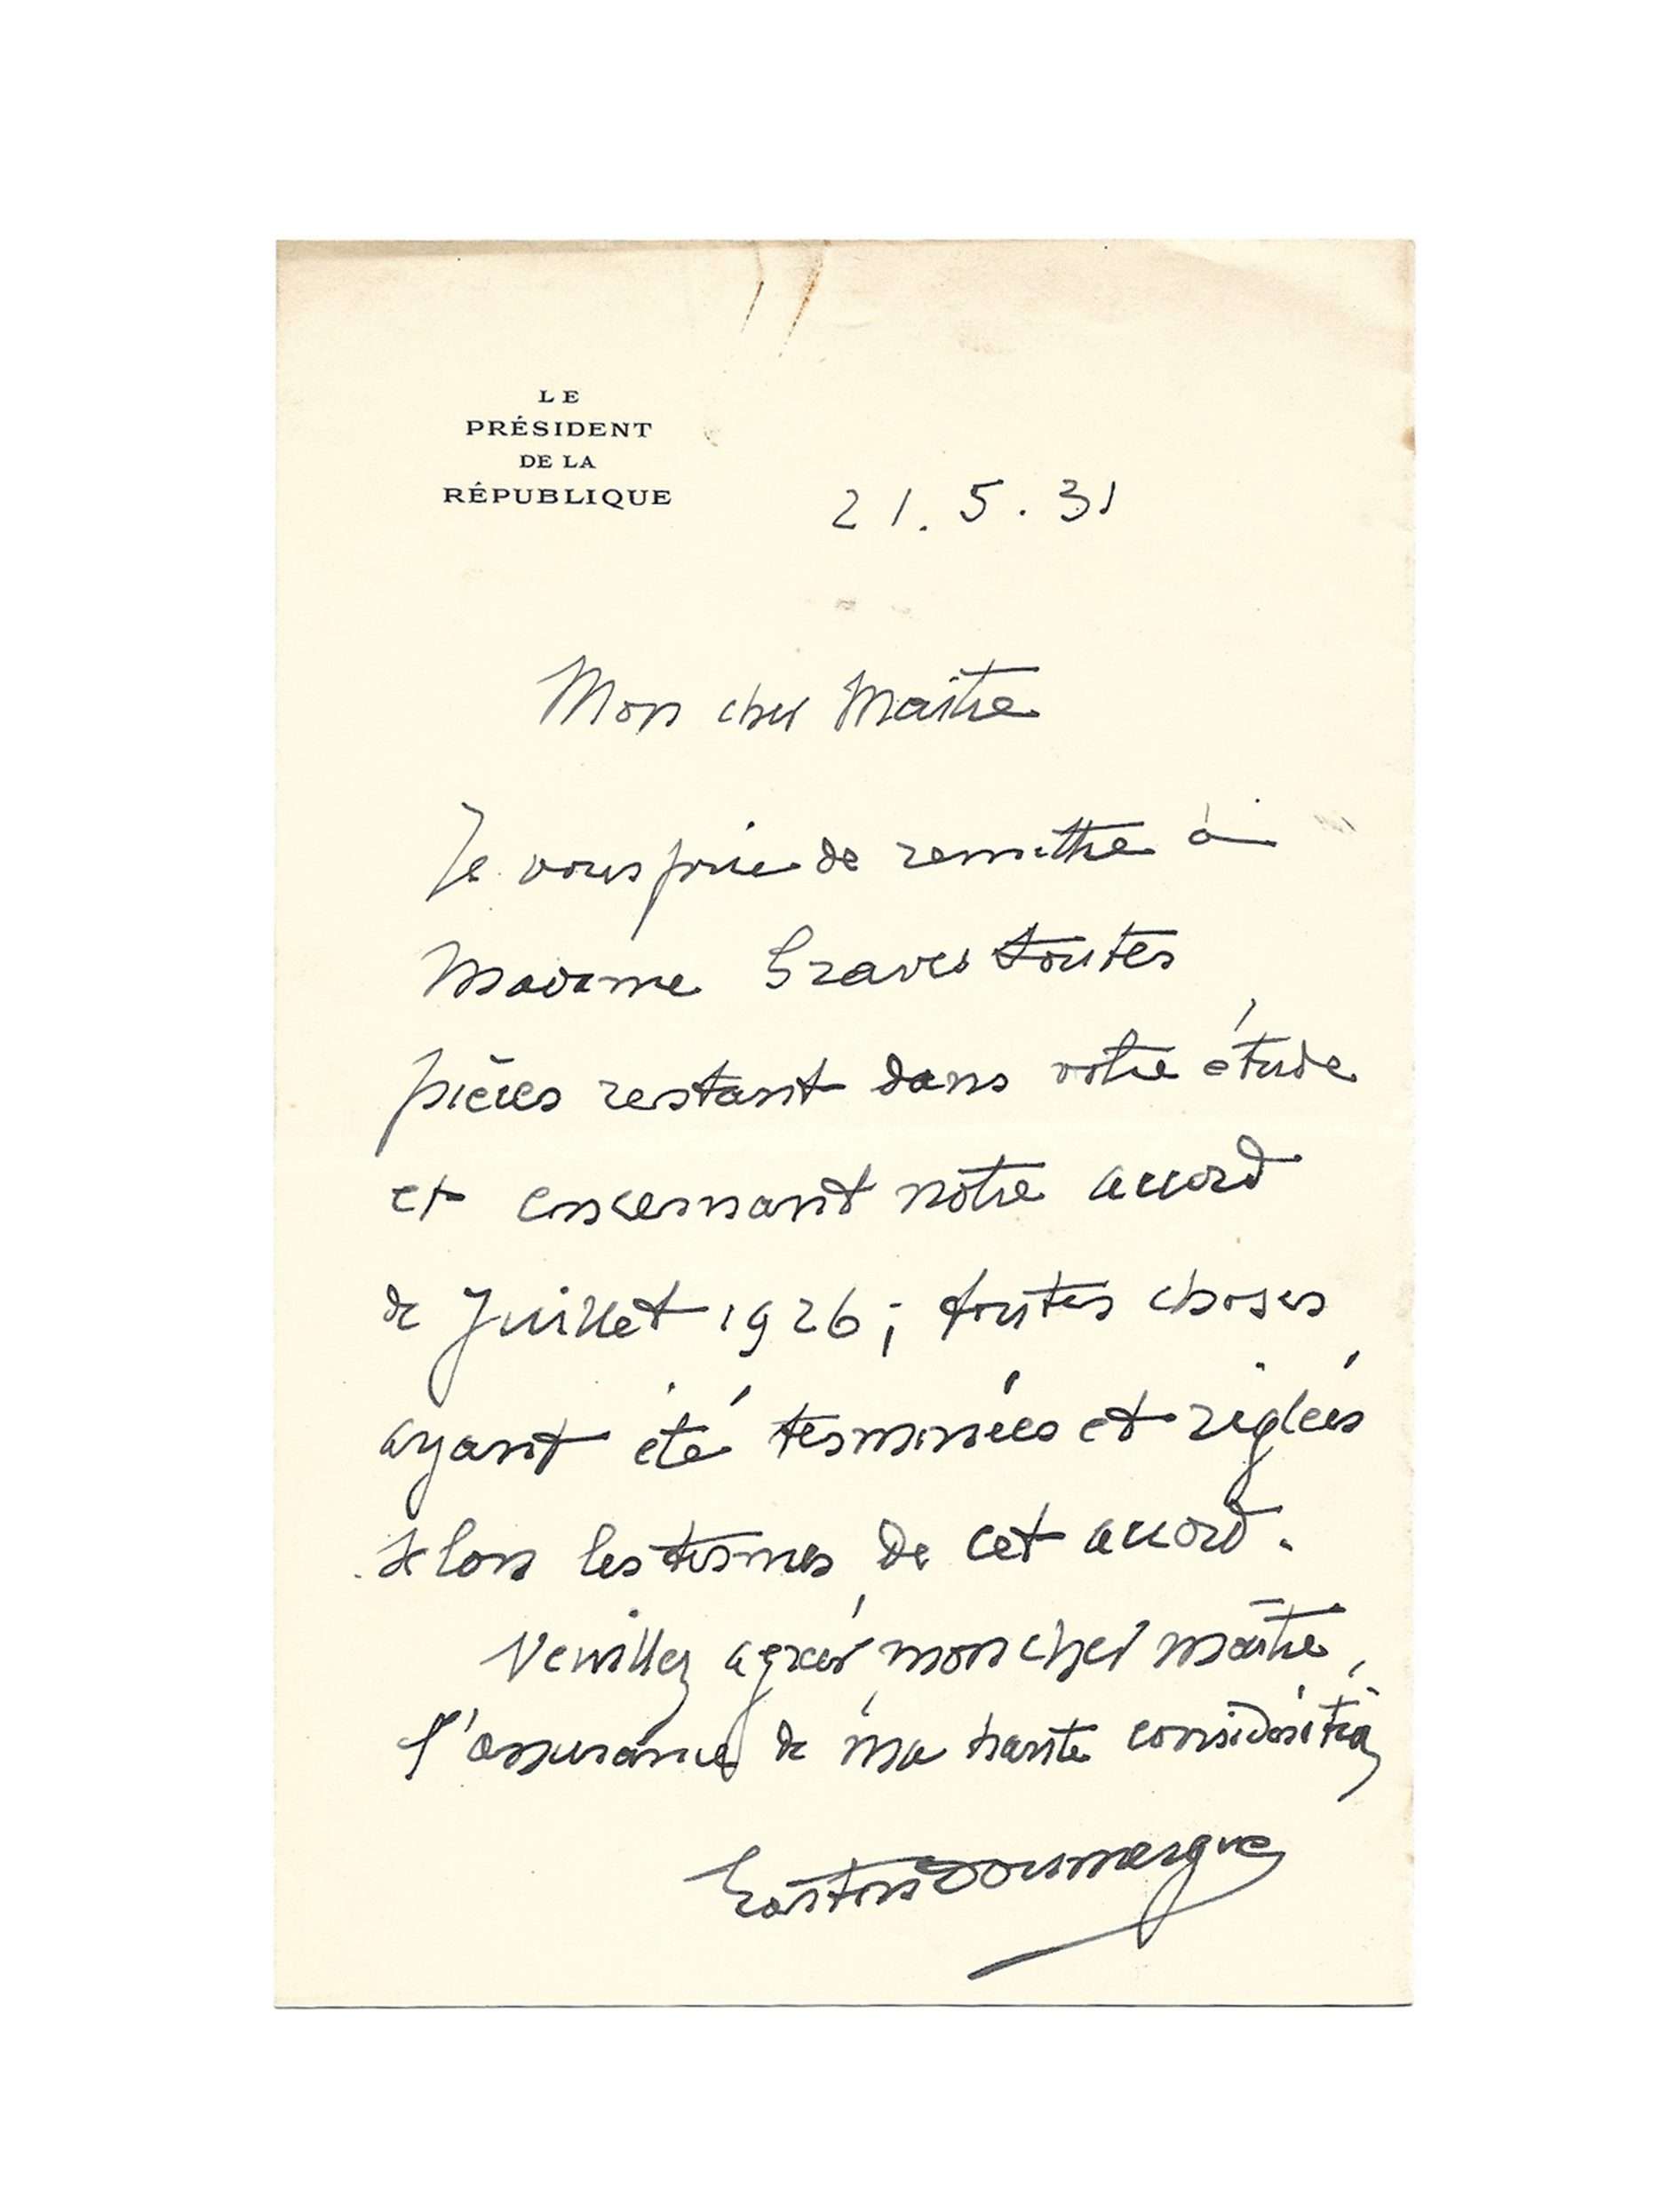 LE
PRÉSIDENT
DE LA
RÉPUBLIQUE
21.5.31
Mon cher Maître
Je vous prie de remettre à
Madame Graves toutes
pièces restant dans votre étude
et concernant notre accord
de Juillet 1926 ; toutes choses
ayant été terminées et réglées
selon les termes de cet accord.
Veuillez agréer mon cher maître,
l'assurance de ma haute considération
Gaston Doumergue